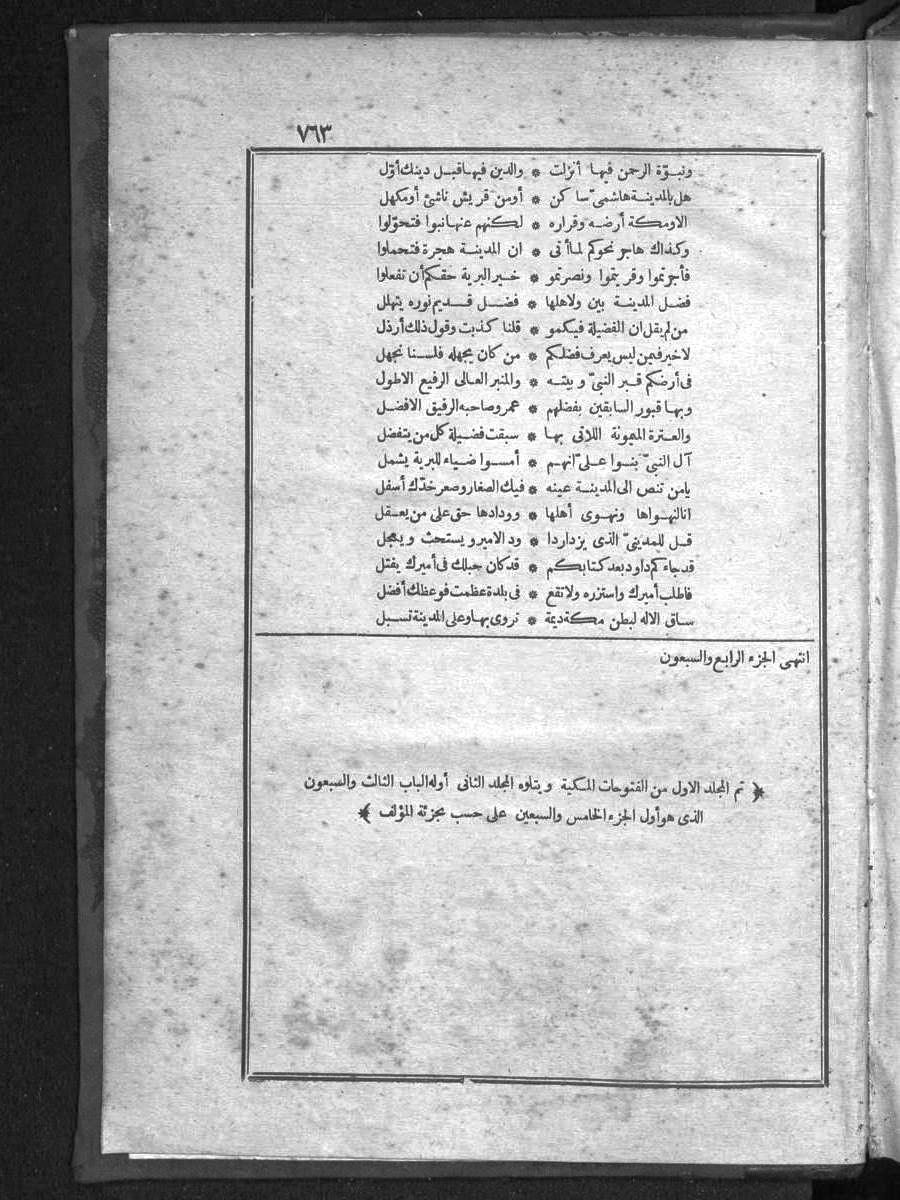 ٧٦٣
ونبوّة الرحمن فيها أنزلت * والدين فيها قبل دينك أوّل
هل بالمدينة هاشمىّ ساكن * أومن قريش ناشئ أومكهل
الاومكة أرضه وقراره * لكنهم عنها نبوا فتحوّلوا
وكذاك هاجر نحوكم لما أتى * ان المدينة هجرة فتحملوا
فأجرتموا وقريتموا ونصرتمو * خير البرية حقكم أن تفعلوا
فضل المدينة بين ولاهلها * فضل قديم نوره يتهلل
من لم يقل ان الفضيلة فيكمو * قلنا كذبت وقول ذلك أرذل
لاخير فيمن ليس يعرف فضلكم * من كان يجهله فلسنا نجهل
فى أرضكم قبر النبىّ وبيته * والمنبر العالى الرفيع الاطول
وبها قبور السابقين بفضلهم * عمر وصاحبه الرفيق الافضل
والعترة الميمونة اللاتى بها * سبقت فضيلة كل من يتفضل
آل النبىّ بنوا علىّ انهم * أمسوا ضياء للبرية يشمل
يامن تنص الى المدينة عينه * فيك الصغار وصعر خدّك أسفل
انا لنهواها ونهوى أهلها * وودادها حق على من يعقل
قل للمدينىّ الذى يزداردا * ود الامير ويستحث ويعجل
قد جاءكم داود بعد كتابكم * قد كان حبلك فى أميرك يفتل
فاطلب أميرك واستزره ولاتقع * فى بلدة عظمت فوعظك أفضل
ساق الاله لبطن مكة ديمة * تروى بها وعلى المدينة تسبل
انتهى الجزء الرابع والسبعون
﴿ تم المجلد الاول من الفتوحات المكية ويتلوه المجلد الثانى أوله الباب الثالث والسبعون
الذى هو أول الجزء الخامس والسبعين على حسب تجزئة المؤلف ﴾